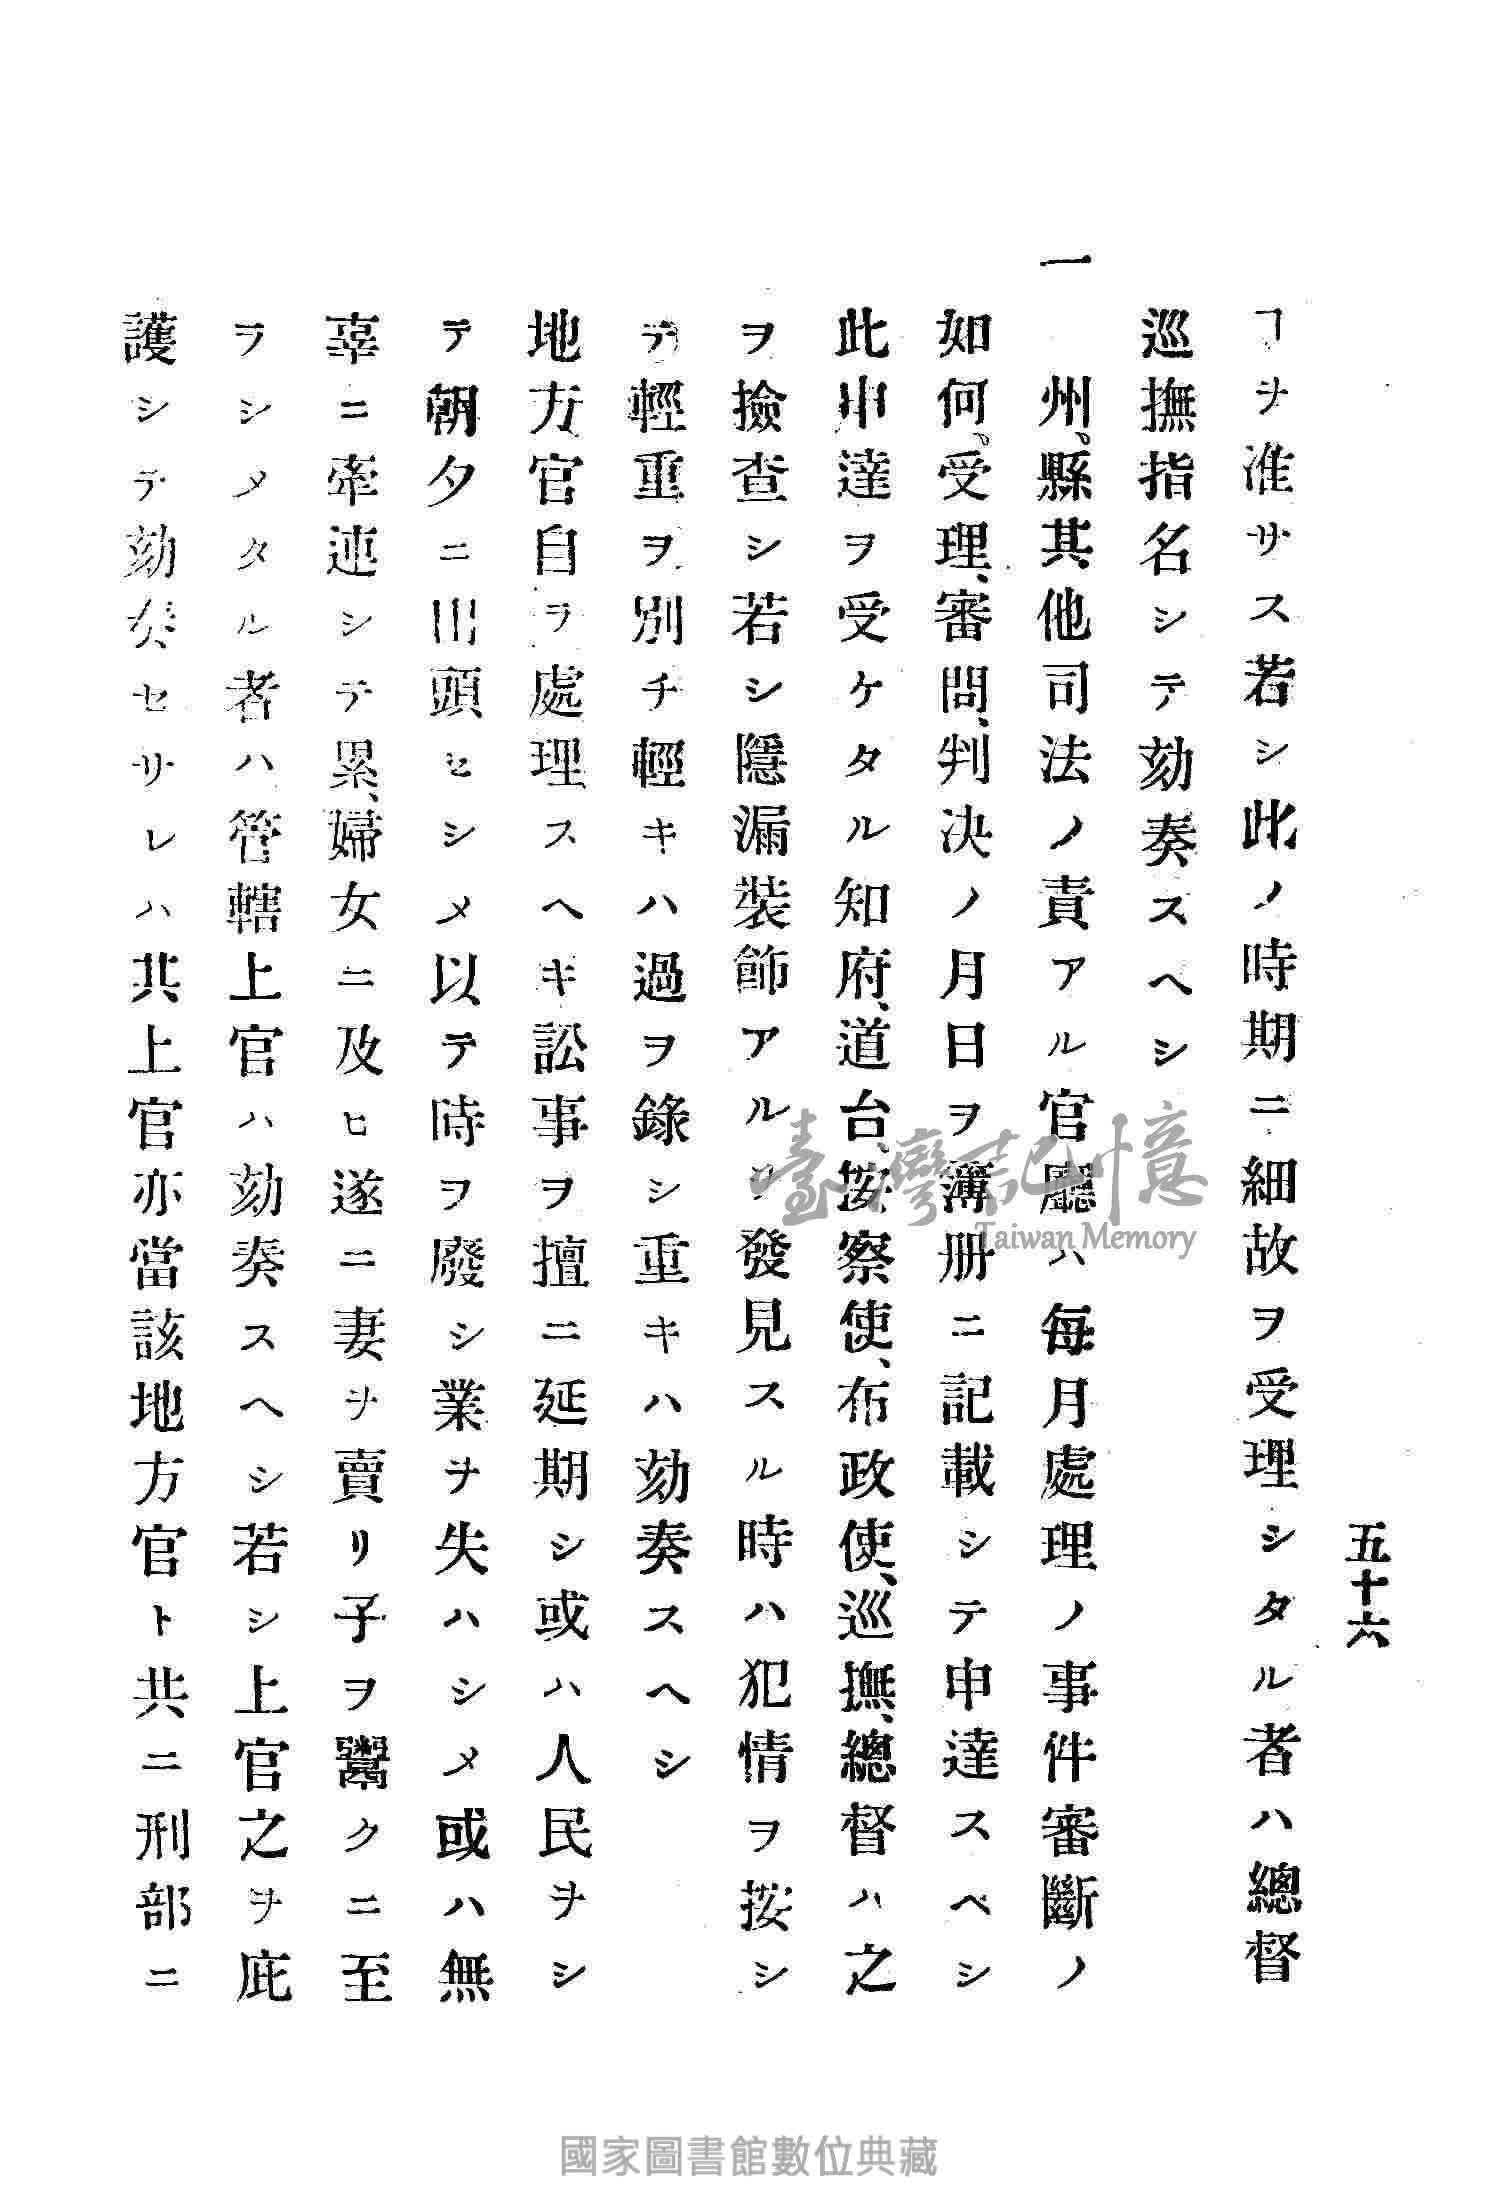 五十六
ヿヲ准サス若シ此ノ時期ニ細故ヲ受理シタル者ハ總督
巡撫指名シテ劾奏スヘシ
一 州、縣其他司法ノ責アル官廳ハ每月處理ノ事件審斷ノ
如何、受理、審問、判决ノ月日ヲ簿册ニ記載シテ申達スベシ
此申達ヲ受ケタル知府、道台、按察使、布政使、巡撫、總督ハ之
ヲ撿查シ若シ隱漏裝飾アルヲ發見スル時ハ犯情ヲ按シ
テ輕重ヲ別チ輕キハ過ヲ錄シ重キハ劾奏スヘシ
地方官自ラ處理スヘキ訟事ヲ擅ニ延期シ或ハ人民ヲシ
テ朝夕ニ出頭セシメ以テ時ヲ廢シ業ヲ失ハシメ或ハ無
辜ニ牽連シテ累、婦女ニ及ヒ遂ニ妻ヲ賣リ子ヲ鬻クニ至
ラシメタル者ハ管轄上官ハ劾奏スヘシ若シ上官之ヲ庇
護シテ劾奏セサレハ其上官亦當該地方官ト共ニ刑部ニ
臺灣記憶
Taiwan Memory
國家圖書館數位典藏